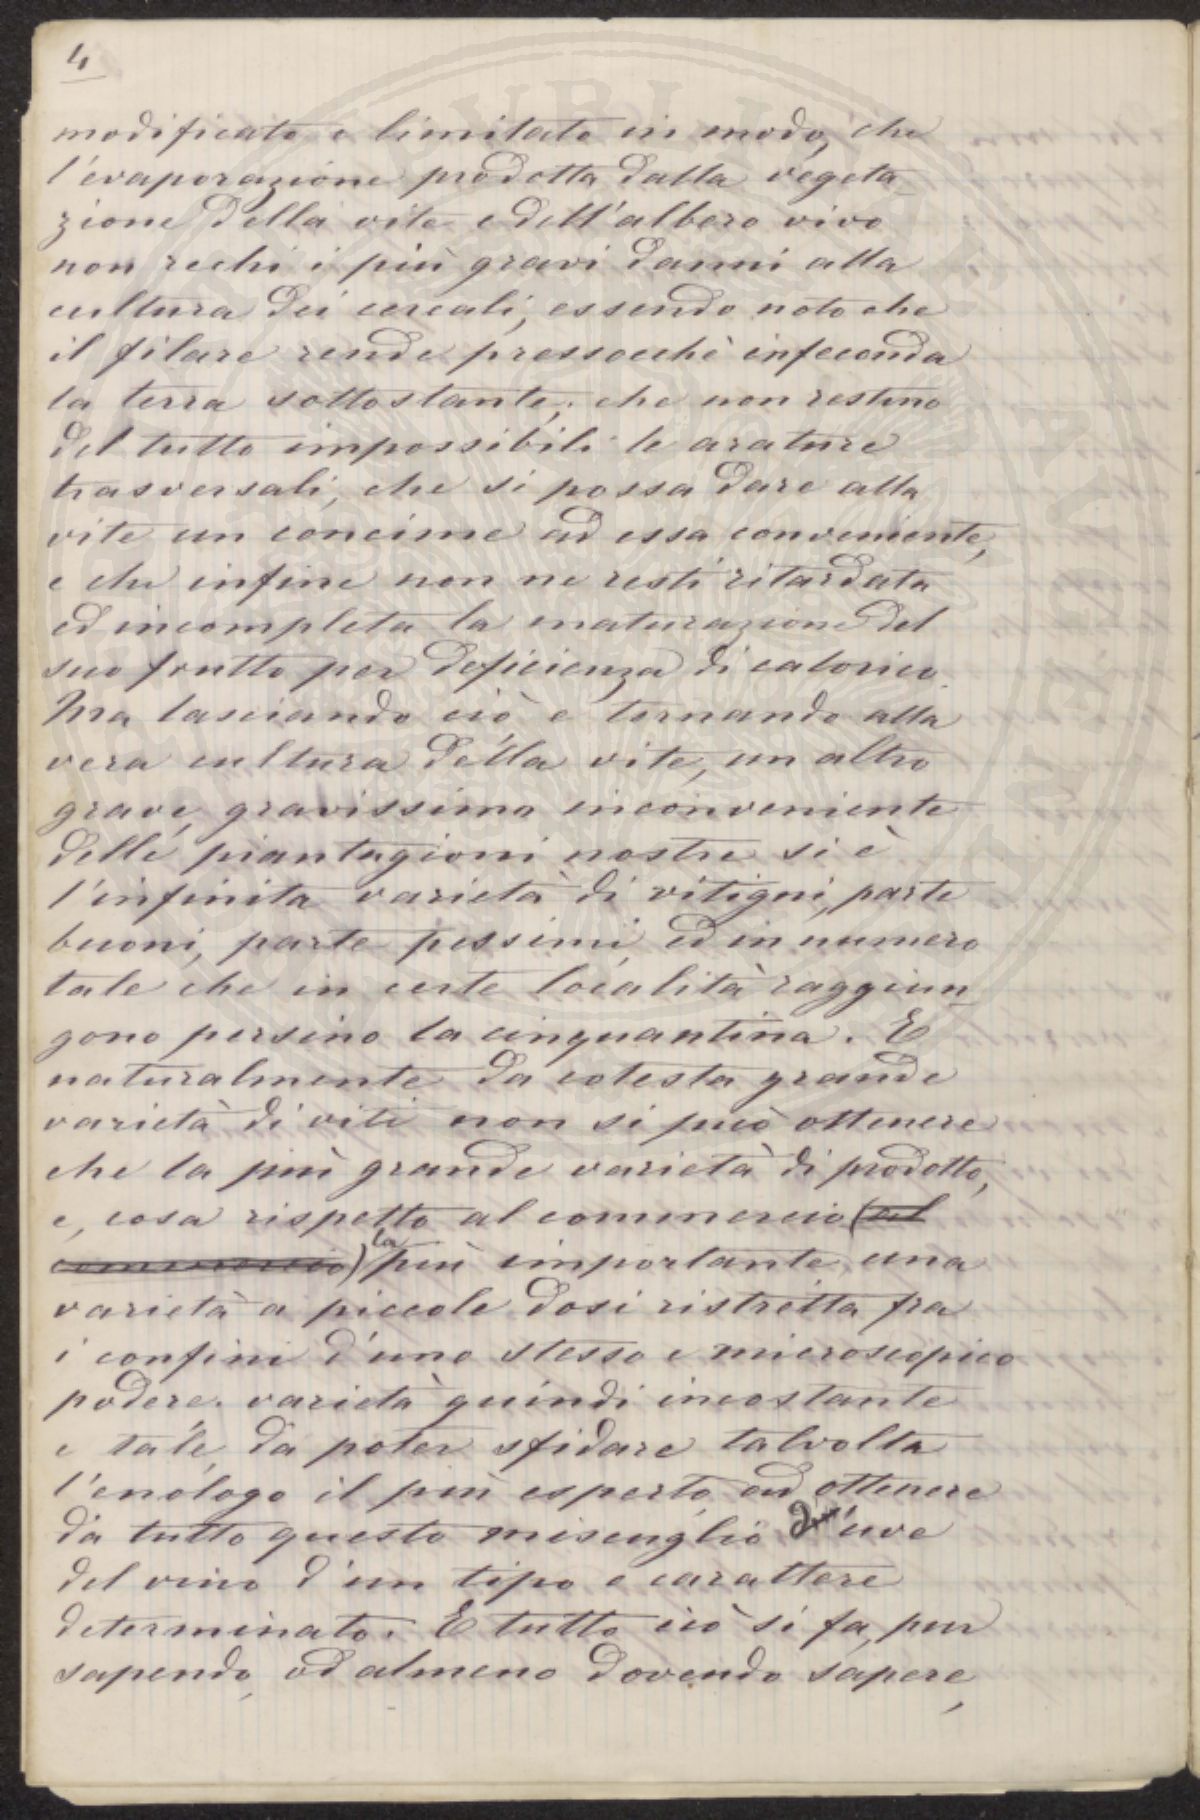 4
modificato e limitato in modo, che
l'evaporazione prodotta dalla vegeta-
zione della vite e dell'albero vivo
non rechi i più gravi danni alla
cultura dei cereali, essendo noto che
il filare rende pressocchè infeconda
la terra sottostante; che non restino
del tutto impossibili le arature
trasversali, che si possa dare alla
vite un concime ad essa conveniente,
e che infine non ne resti ritardata
ed incompleta la maturazione del
suo frutto per deficienza di calorico.
Ma lasciando ciò e tornando alla
vera cultura della vite, un altro
grave, gravissimo inconveniente
delle piantagioni nostre si è
l'infinita varietà di vitigni, parte
buoni, parte pessimi, ed in numero
tale che in certe località raggiun-
gono persino la cinquantina. E
naturalmente da cotesta grande
varietà di viti non si può ottenere
che la più grande varietà di prodotto,
e, cosa rispetto al commercio (al
commercio) la più importante, una
varietà a piccole dosi ristretta fra
i confini d'uno stesso e microscopico
podere. varietà quindi incostante
e tale, da poter sfidare talvolta
l'enologo il più esperto, ad ottenere
da tutto questo miscuglio d'uve
del vino d'un tipo e carattere
determinato. E tutto ciò si fa, pur
sapendo, od almeno dovendo sapere,